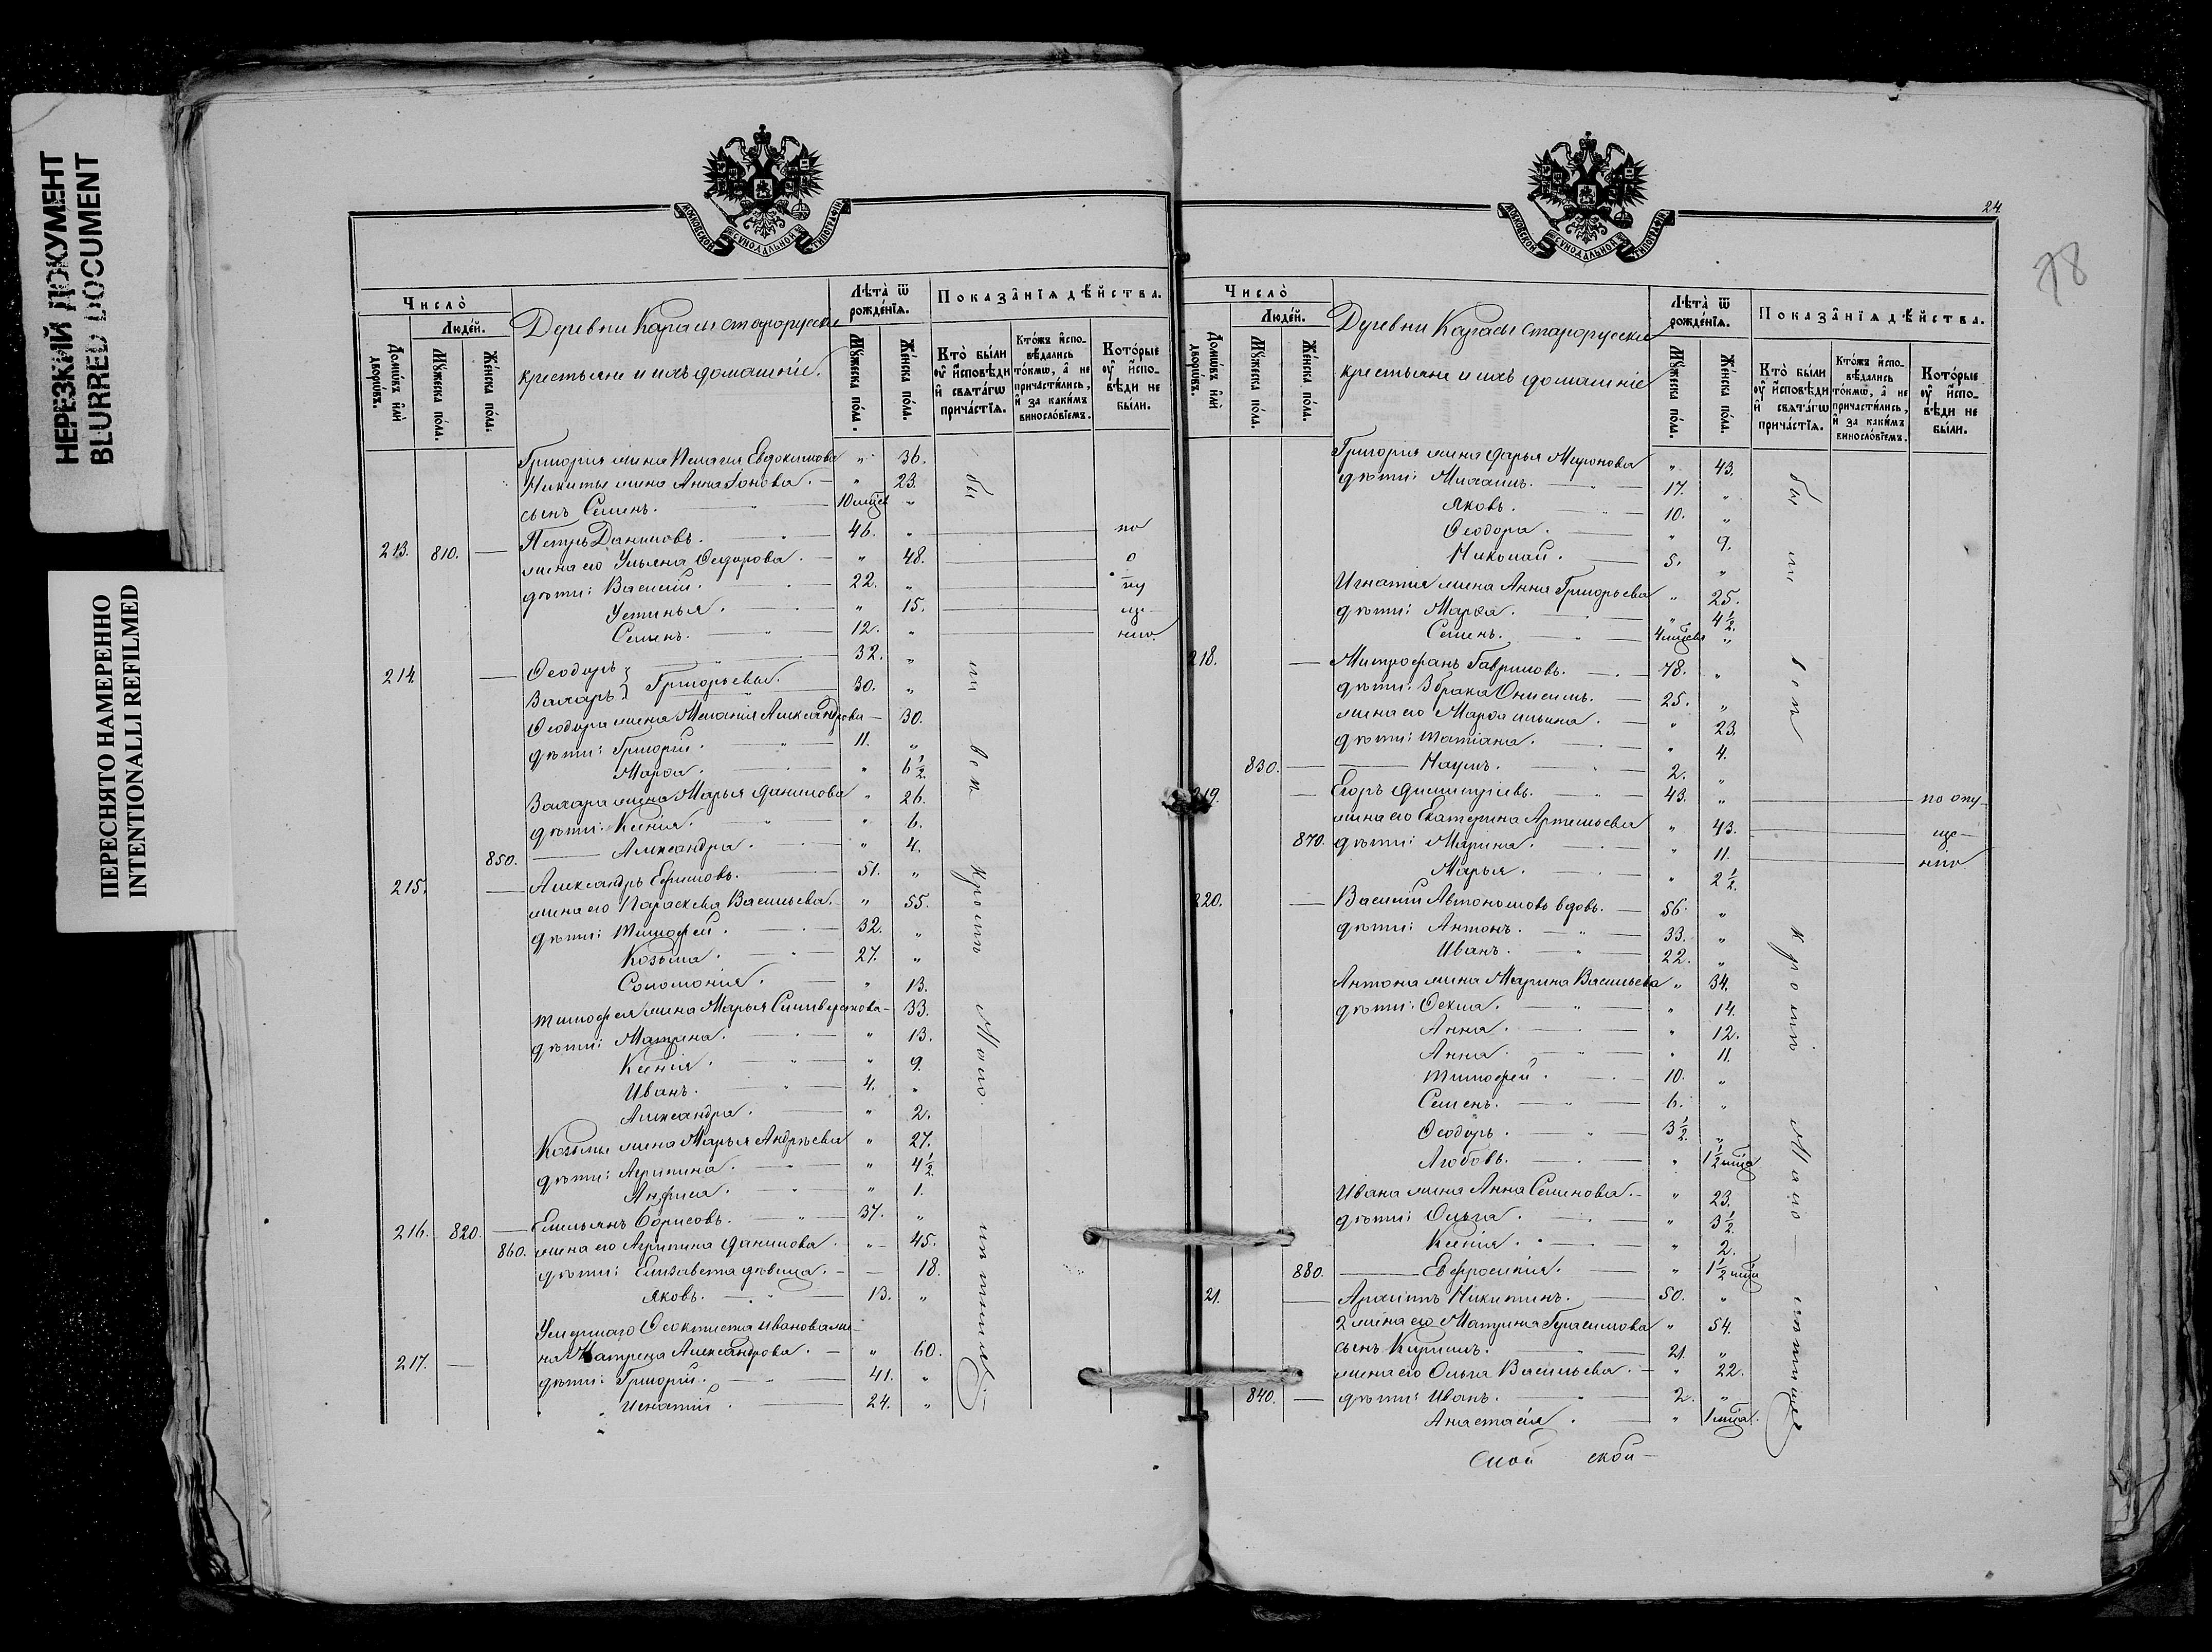 НЕРЕЗКИЙ ДОКУМЕНТ
BLURRED DOCUMENT
ПЕРЕСНЯТО НАМЕРЕННО
INTENTIONALLI REFILMED
МОСКОВСКОЙ СѴНОДАЛЬНОЙ ТИПОГРАФІИ
Число̀
Люде́й.
Домѡ́въ и҆лѝ дворѡ́въ.
Мꙋ́жеска по́ла.
Же́нска по́ла.
Деревни Карасы старорусские
крестьяне и ихъ домашніе.
Лѣ́та ѿ рожде́нїѧ.
Мꙋ́жеска по́ла.
Же́нска по́ла.
Показа̑нїѧ дѣ́йства.
Кто̀ бы́ли оу҆ и҆сповѣ́ди и҆ свѧта́гѡ прича́стїѧ.
Кто́жъ и҆сповѣ́дались то́кмѡ, а҆ не причасти́лись, и҆ за каки́мъ винослѡ́вїемъ.
Кото́рые оу҆ и҆сповѣ́ди не бы́ли.
Григорія жена Пелагія Евдокимова " 36.
Никиты жена Анна Зонова. " 23.
сынъ Семенъ. 10 мцев "
213. 810. Петръ Даниловъ. 46. "
жена его Ульяна Федорова. " 48.
дѣти: Василій. 22. "
Устинья. " 15.
Семенъ. 12. "
по опущенію
214. Ѳеодоръ } Григорьевы. 32. "
Захаръ } 30. "
Ѳеодора жена Меланія Александрова 30.
дѣти: Григорій. 11. "
Марѳа. " 6 1/2.
Захара жена Марья Данилова " 26.
дѣти: Ксенія. " 6.
850. Александра. " 4.
215. Александръ Ефимовъ. 51. "
жена его Параскева Васильева. " 55.
дѣти: Тимофей. 32. "
Козьма. 27. "
Соломонія. " 13.
Тимофея жена Марья Селиверстова 33.
дѣти: Матрена. " 13.
Ксенія. " 9.
Иванъ. 4. "
Александра. " 2.
Козьмы жена Марья Андрѣева " 27.
дѣти: Агрипина. " 4 1/2.
Анфиса. " 1.
216. 820. Емельянъ Борисовъ. 37. "
860. жена его Агрипина Данилова. " 45.
дѣти: Елизавета дѣвица. 18.
Яковъ. 13. "
Умершаго Ѳеоктиста Иванова же-
217. на Матрена Александрова. " 60.
дѣти: Григорій. 41. "
Игнатій. 24. "
были всѣ кромѣ мало лѣтнихъ
24.
78
МОСКОВСКОЙ СѴНОДАЛЬНОЙ ТИПОГРАФІИ
Число̀
Люде́й.
Домѡ́въ и҆лѝ дворѡ́въ.
Мꙋ́жеска по́ла.
Же́нска по́ла.
Деревни Карасы старорусские
крестьяне и ихъ домашніе
Лѣ́та ѿ рожде́нїѧ.
Мꙋ́жеска по́ла.
Же́нска по́ла.
Показа̑нїѧ дѣ́йства.
Кто̀ бы́ли оу҆ и҆сповѣ́ди и҆ свѧта́гѡ прича́стїѧ.
Кто́жъ и҆сповѣ́дались то́кмѡ, а҆ не причасти́лись, и҆ за каки́мъ винослѡ́вїемъ.
Кото́рые оу҆ и҆сповѣ́ди не бы́ли.
Григорія жена Дарья Миронова " 43.
дѣти: Михаилъ. 17. "
Яковъ. 10. "
Ѳеодора. " 9.
Николай. 5. "
Игнатія жена Анна Григорьева " 25.
дѣти: Марѳа. " 4 1/2.
Семенъ. 4 мцев "
218. Митрофанъ Гавриловъ. 48. "
дѣти: 3 брака Онисимъ. 25. "
жена его Марѳа Ильина. " 23.
дѣти: Татіана. " 4.
830. Наумъ. 2. "
219. Егоръ Димитріевъ. 43. " по опу-
жена его Екатерина Артемьева " 43. ще-
870. дѣти: Марина. " 11. нію
Марья. " 2 1/2.
220. Василій Автономовъ вдовъ. 56. "
дѣти: Антонъ. 33. "
Иванъ. 22. "
Антона жена Марина Васильева " 34.
дѣти: Ѳекла. " 14.
Анна. " 12.
Анна. " 11.
Тимофей. 10. "
Семенъ. 6. "
Ѳеодоръ. 3 1/2. "
Любовь. " 1 1/2 мца
Ивана жена Анна Семенова. " 23.
дѣти: Ольга. " 3 1/2.
Ксенія. " 2.
880. Евфросинія. " 1 1/2 мца
21. Архиппъ Никитинъ. 50. "
2 жена его Матрена Герасимова " 54.
сынъ Кирилъ. 21. "
жена его Ольга Васильева. " 22.
840. дѣти: Иванъ. 2. "
Анастасія. " 1 мца.
были всѣ кромѣ мало лѣтнихъ